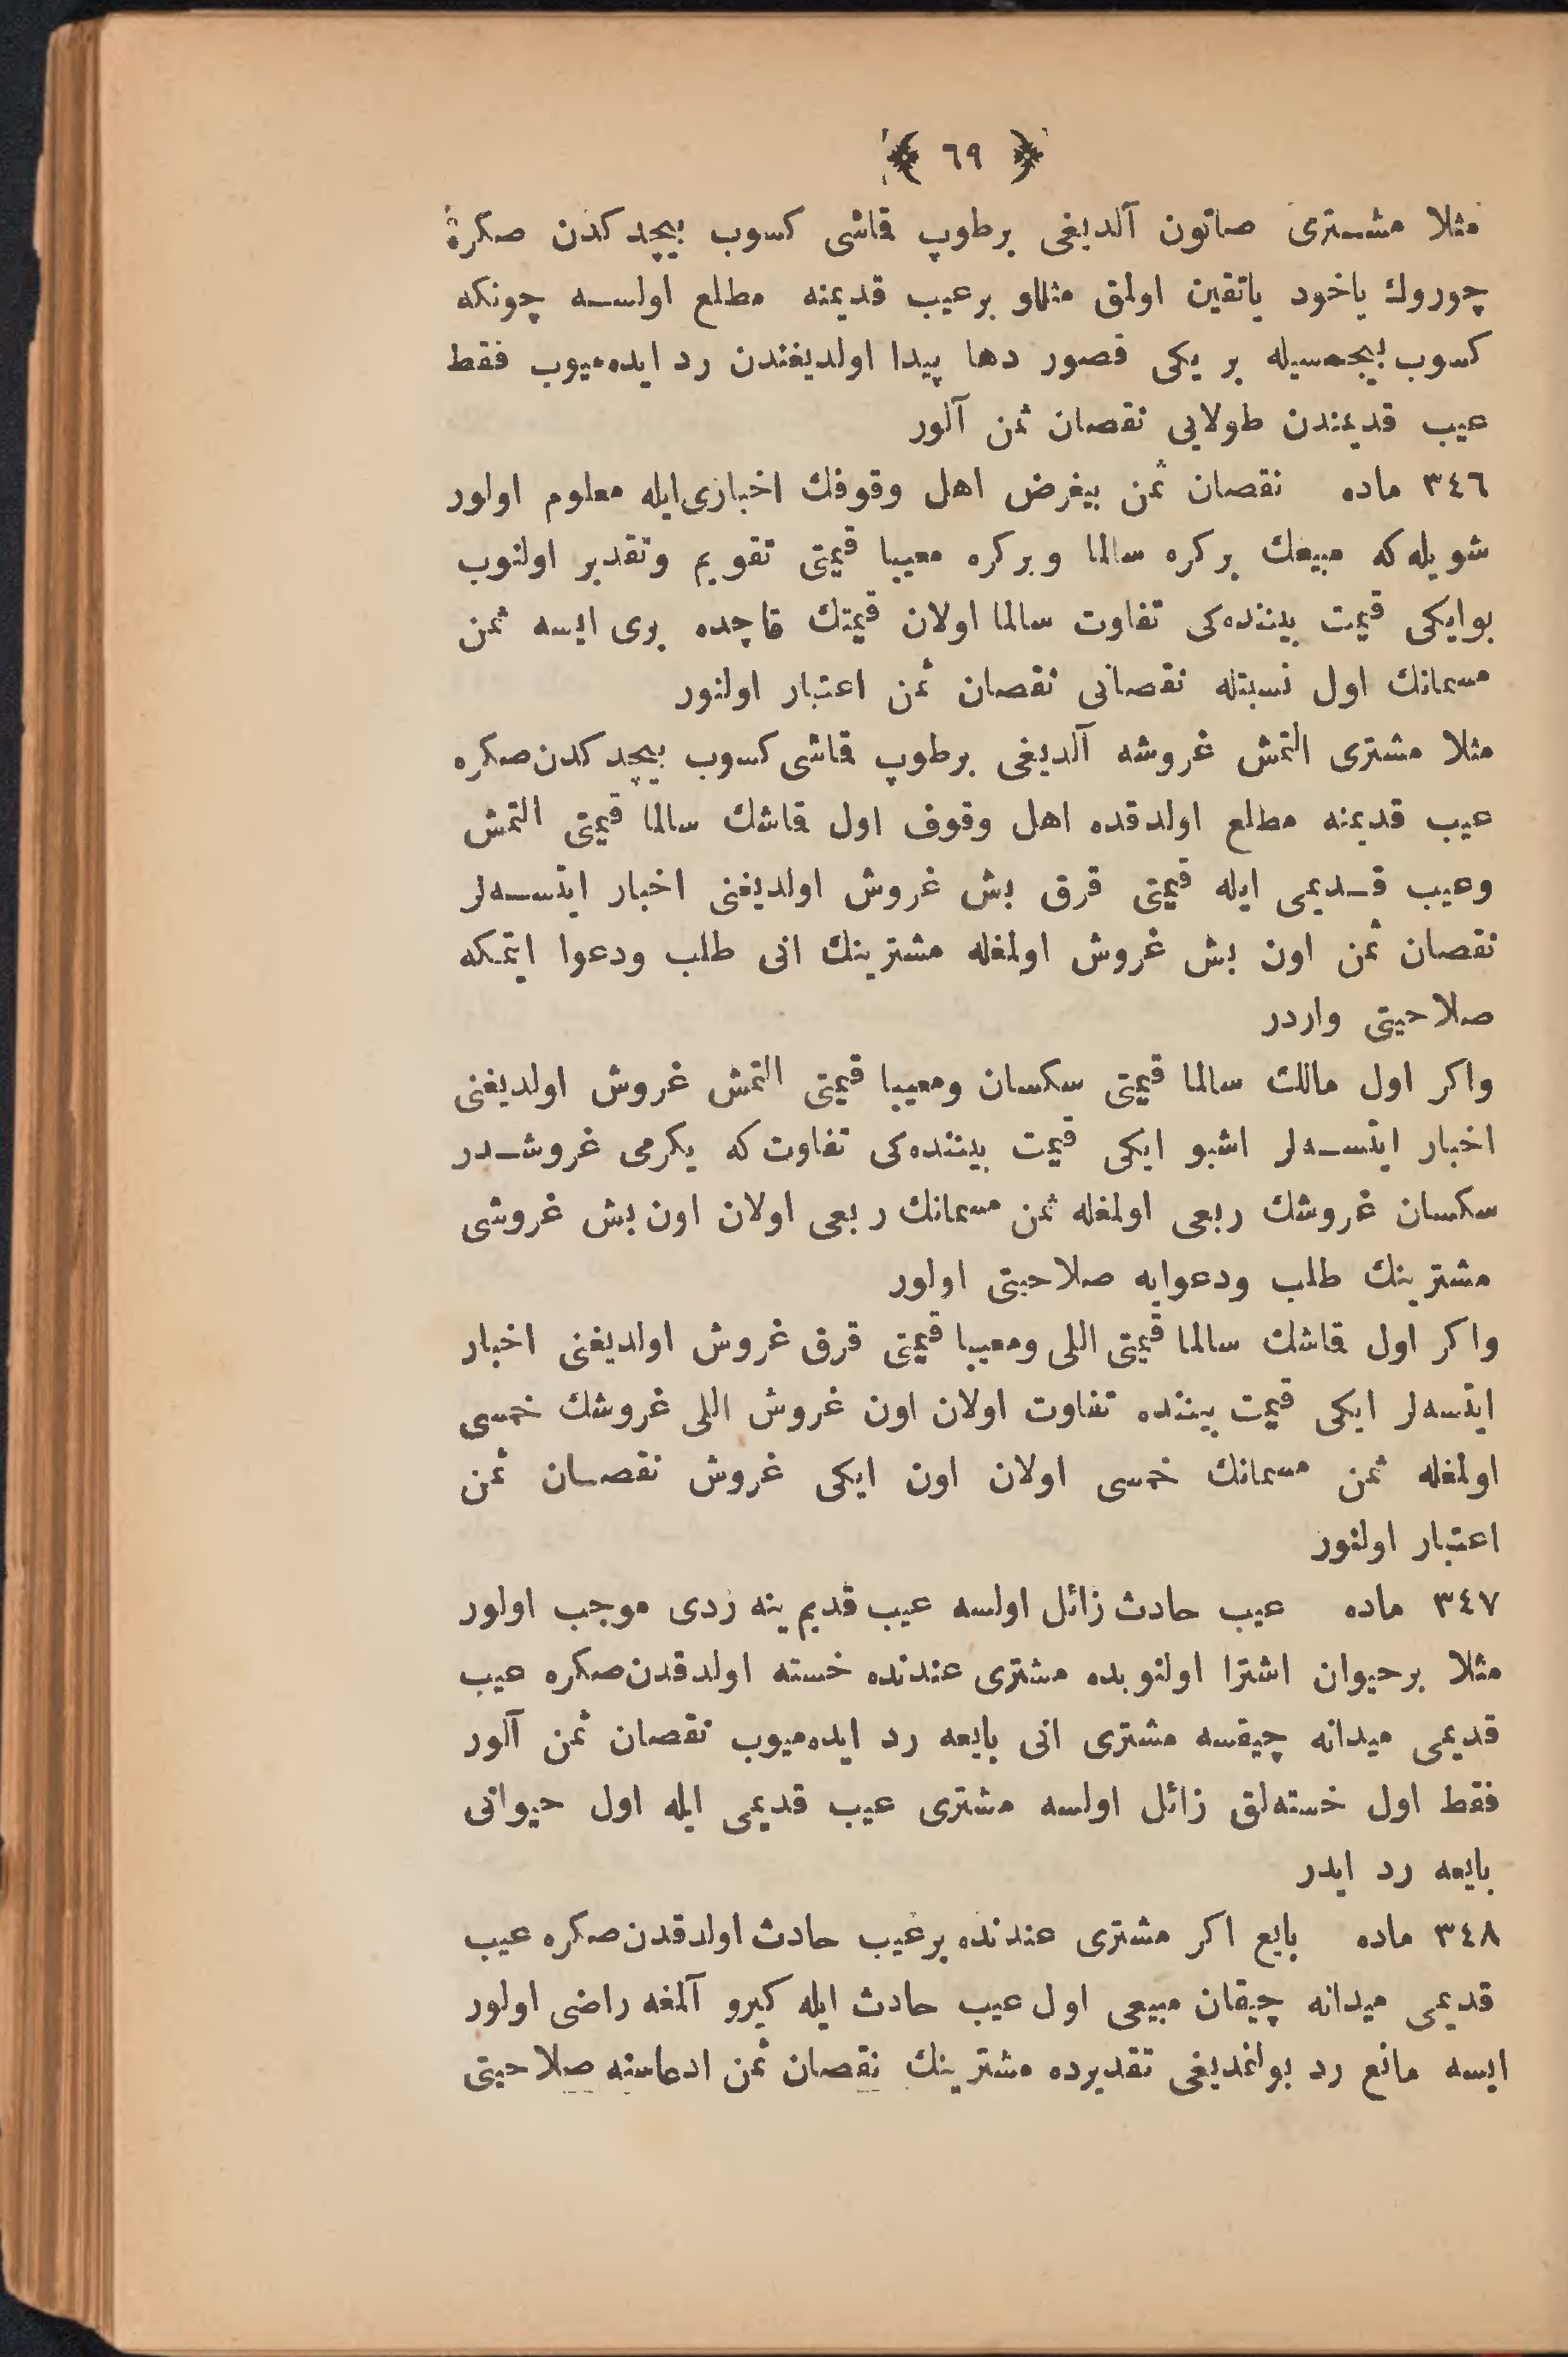 ﴿ ٦٩ ﴾
مثلا مشــترى صاتون آلديغى برطوپ قماشى كسوب بيچدكدن صكره
چوروك ياخود ياتقين اولمق مثللو برعيب قديمنه مطلع اولســه چونكه
كسوب بيچمسيله بر يكى قصور دها پيدا اولديغندن رد ايده‌ميوب فقط
عيب قديمندن طولايى نقصان ثمن آلور
٣٤٦ ماده نقصان ثمن بيغرض اهل وقوفك اخبارى ايله معلوم اولور
شويله‌كه مبيعك بركره سالما وبركره معيبا قيمتى تقويم وتقدير اولنوب
بوايكى قيمت بيننده‌كى تفاوت سالما اولان قيمتك قاچده برى ايسه ثمن
مسمانك اول نسبتله نقصانى نقصان ثمن اعتبار اولنور
مثلا مشترى التمش غروشه آلديغى برطوپ قماشى كسوب بيچدكدن صكره
عيب قديمنه مطلع اولدقده اهل وقوف اول قماشك سالما قيمتى التمش
وعيب قــديمى ايله قيمتى قرق بش غروش اولديغنى اخبار ايتســه‌لر
نقصان ثمن اون بش غروش اولمغله مشترينك انى طلب ودعوا ايتمكه
صلاحيتى واردر
واكر اول مالك سالما قيمتى سكسان ومعيبا قيمتى التمش غروش اولديغنى
اخبار ايتســه‌لر اشبو ايكى قيمت بيننده‌كى تفاوت كه يكرمى غروشــدر
سكسان غروشك ربعى اولمغله ثمن مسمانك ربعى اولان اون بش غروشى
مشترينك طلب ودعوايه صلاحيتى اولور
واكر اول قماشك سالما قيمتى اللى ومعيبا قيمتى قرق غروش اولديغنى اخبار
ايتسه‌لر ايكى قيمت بيننده تفاوت اولان اون غروش اللى غروشك خمسى
اولمغله ثمن مسمانك خمسى اولان اون ايكى غروش نقصــان ثمن
اعتبار اولنور
٣٤٧ ماده عيب حادث زائل اولسه عيب قديم ينه ردى موجب اولور
مثلا برحيوان اشترا اولنوبده مشترى عندنده خسته اولدقدن صكره عيب
قديمى ميدانه چيقسه مشترى انى بايعه رد ايده‌ميوب نقصان ثمن آلور
فقط اول خسته‌لق زائل اولسه مشترى عيب قديمى ايله اول حيوانى
بايعه رد ايدر
٣٤٨ ماده بايع اكر مشترى عندنده برعيب حادث اولدقدن صكره عيب
قديمى ميدانه چيقان مبيعى اول عيب حادث ايله كيرو آلمغه راضى اولور
ايسه مانع رد بولنمديغى تقديرده مشترينك نقصان ثمن ادعاسنه صلاحيتى